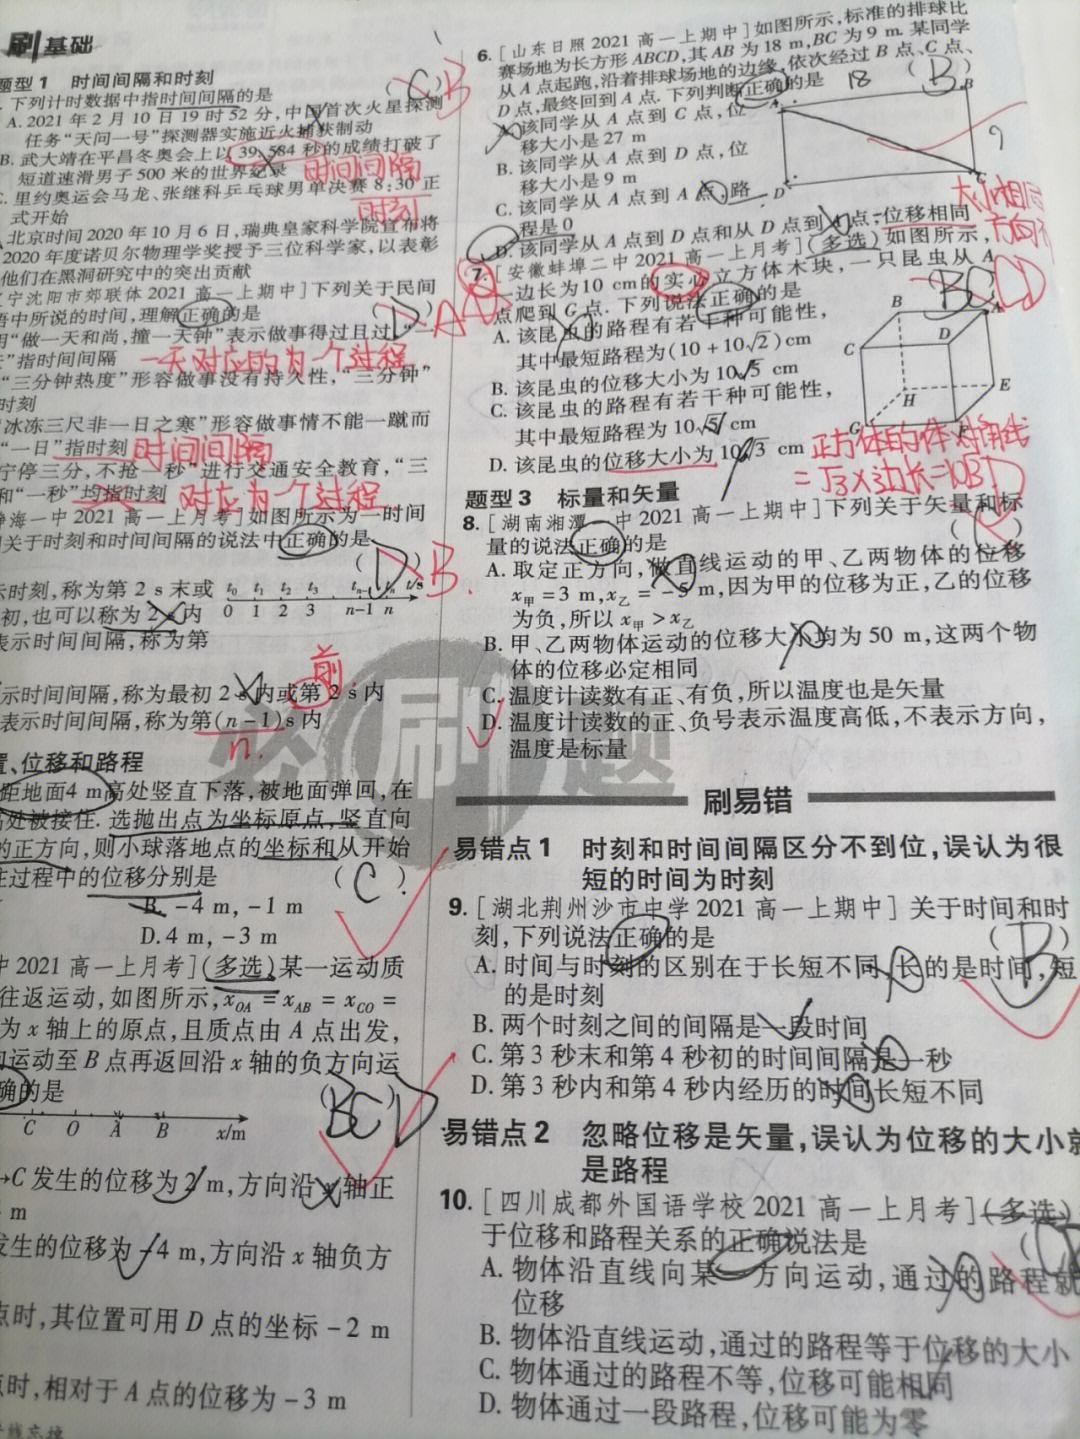 刷基础
题型1 时间间隔和时刻
下列计时数据中指时间间隔的是
(C)B
A. 2021 年 2 月 10 日 19 时 52 分,中国首次火星探测
任务“天问一号”探测器实施近火捕获制动
B. 武大靖在平昌冬奥会上以 39.584 秒的成绩打破了
短道速滑男子 500 米的世界纪录
时间间隔
里约奥运会马龙、张继科乒乓球男单决赛 8:30 正
式开始
时刻
北京时间 2020 年 10 月 6 日,瑞典皇家科学院宣布将
2020 年度诺贝尔物理学奖授予三位科学家,以表彰
他们在黑洞研究中的突出贡献
宁沈阳市郊联体 2021 高一上期中]下列关于民间
语中所说的时间,理解正确的是
用“做一天和尚,撞一天钟”表示做事得过且过,“一
”指时间间隔
一天对应的为一个过程
“三分钟热度”形容做事没有持久性,“三分钟”
时刻
冰冻三尺非一日之寒”形容做事情不能一蹴而
“一日”指时刻
时间间隔
宁停三分,不抢一秒”进行交通安全教育,“三
和“一秒”均指时刻
对应为一个过程
海一中 2021 高一上月考]如图所示为一时间
关于时刻和时间间隔的说法中正确的是
(D)B
示时刻,称为第 2 s 末或
t₀ t₁ t₂ t₃ tₙ₋₁ tₙ t/s
0 1 2 3 n-1 n
初,也可以称为 2 s 内
表示时间间隔,称为第
前
示时间间隔,称为最初 2 s 内或第 2 s 内
表示时间间隔,称为第(n-1)s 内
n.
置、位移和路程
距地面4 m高处竖直下落,被地面弹回,在
高处被接住. 选抛出点为坐标原点,竖直向
的正方向,则小球落地点的坐标和从开始
在过程中的位移分别是
(C).
B. -4 m, -1 m
D. 4 m, -3 m
中 2021 高一上月考](多选)某一运动质
往返运动,如图所示,x_OA = x_AB = x_CO =
为 x 轴上的原点,且质点由 A 点出发,
向运动至 B 点再返回沿 x 轴的负方向运
确的是
(BCD
C O A B x/m
→C 发生的位移为 2 m,方向沿 x 轴正
m
发生的位移为 -4 m,方向沿 x 轴负方
点时,其位置可用 D 点的坐标 -2 m
点时,相对于 A 点的位移为 -3 m
6. [山东日照 2021 高一上期中]如图所示,标准的排球比
赛场地为长方形 ABCD,其 AB 为 18 m,BC 为 9 m. 某同学
从 A 点起跑,沿着排球场地的边缘,依次经过 B 点、C 点、
D 点,最终回到 A 点. 下列判断正确的是
(B)
18
A B
A. 该同学从 A 点到 C 点,位
移大小是 27 m
9
B. 该同学从 A 点到 D 点,位
移大小是 9 m
D C
C. 该同学从 A 点到 A 点,路
程是 0
大小相同
D. 该同学从 A 点到 D 点和从 D 点到 A 点,位移相同
7. [安徽蚌埠二中 2021 高一上月考](多选)如图所示,
边长为 10 cm 的实心立方体木块,一只昆虫从 A
点爬到 G 点. 下列说法正确的是
(BC)CD
A. 该昆虫的路程有若干种可能性,
其中最短路程为(10+10√2)cm
B. 该昆虫的位移大小为 10√5 cm
C. 该昆虫的路程有若干种可能性,
其中最短路程为 10√5 cm
D. 该昆虫的位移大小为 10√3 cm
B A
C D
H E
G F
正方体的体对角线
=√3×边长=10√3
题型3 标量和矢量
8. [湖南湘潭一中 2021 高一上期中]下列关于矢量和标
量的说法正确的是
( )
D
A. 取定正方向,做直线运动的甲、乙两物体的位移
x甲 = 3 m,x乙 = -5 m,因为甲的位移为正,乙的位移
为负,所以 x甲 > x乙
B. 甲、乙两物体运动的位移大小均为 50 m,这两个物
体的位移必定相同
C. 温度计读数有正、有负,所以温度也是矢量
D. 温度计读数的正、负号表示温度高低,不表示方向,
温度是标量
必刷题
刷易错
易错点1 时刻和时间间隔区分不到位,误认为很
短的时间为时刻
9. [湖北荆州沙市中学 2021 高一上期中] 关于时间和时
刻,下列说法正确的是
(B)
A. 时间与时刻的区别在于长短不同,长的是时间,短
的是时刻
B. 两个时刻之间的间隔是一段时间
C. 第 3 秒末和第 4 秒初的时间间隔是一秒
D. 第 3 秒内和第 4 秒内经历的时间长短不同
易错点2 忽略位移是矢量,误认为位移的大小就
是路程
10. [四川成都外国语学校 2021 高一上月考](多选)
于位移和路程关系的正确说法是
A. 物体沿直线向某一方向运动,通过的路程就
位移
B. 物体沿直线运动,通过的路程等于位移的大小
C. 物体通过的路程不等,位移可能相同
D. 物体通过一段路程,位移可能为零